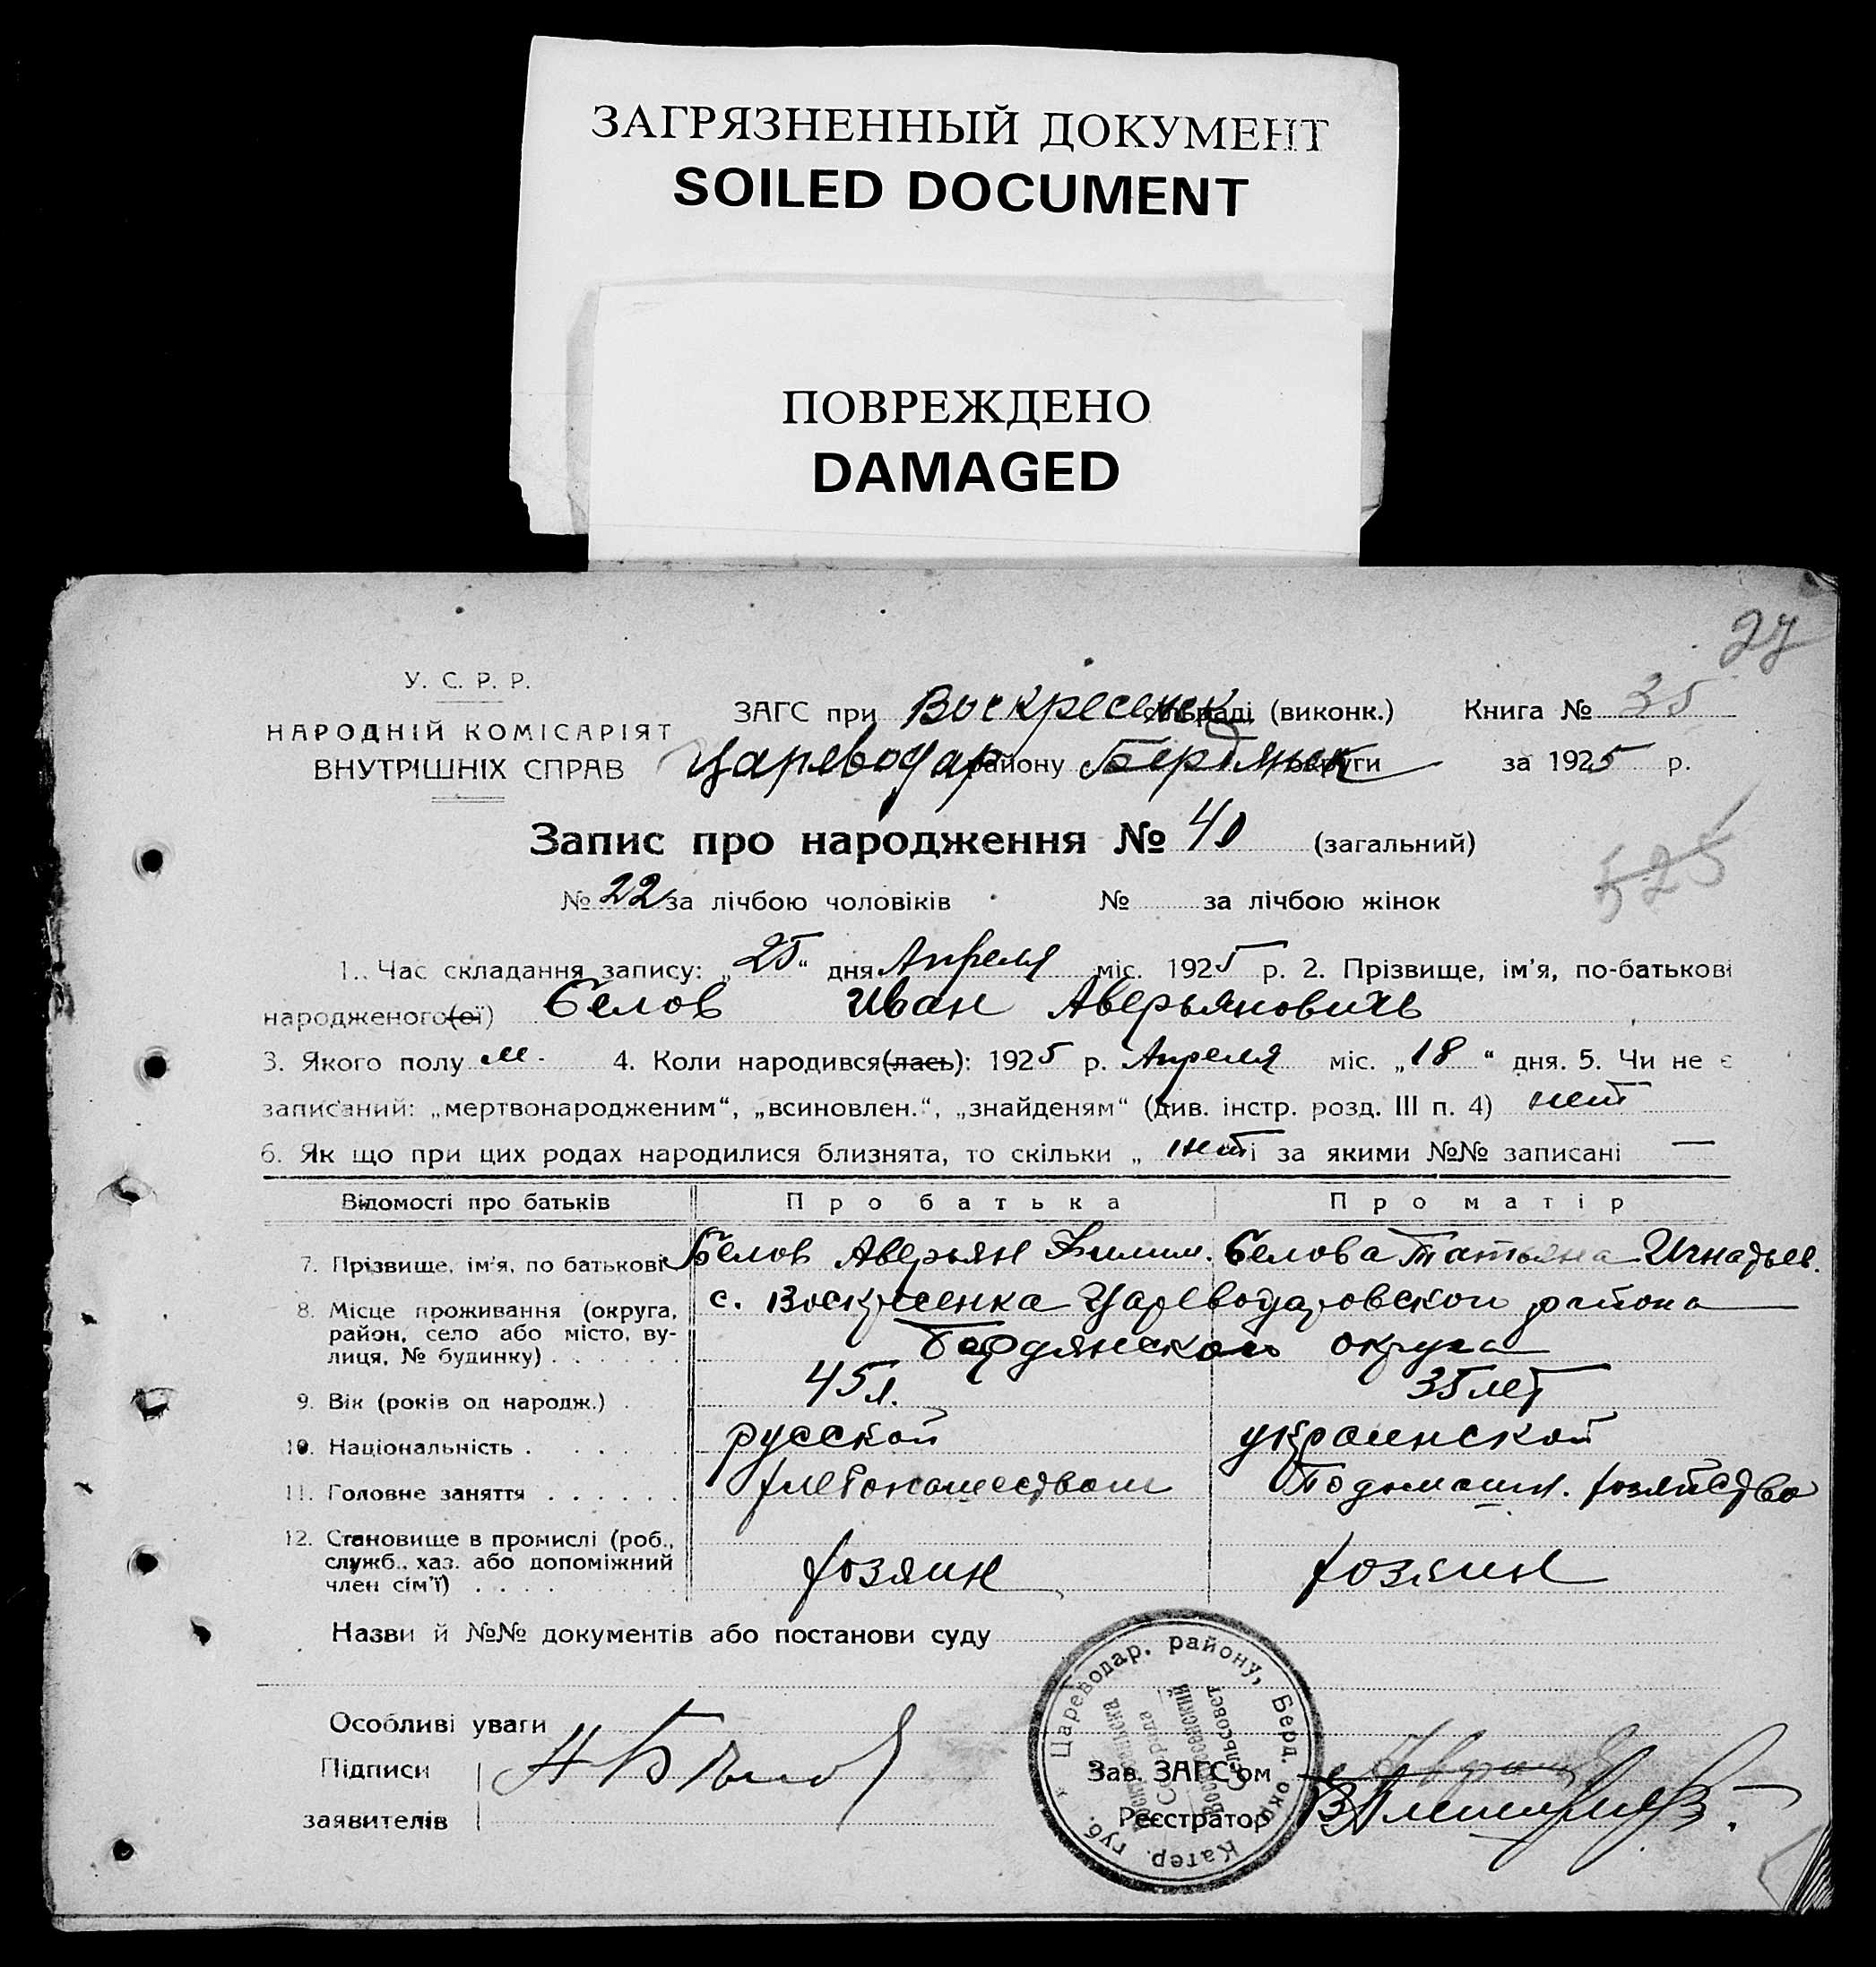 ЗАГРЯЗНЕННЫЙ ДОКУМЕНТ
SOILED DOCUMENT
ПОВРЕЖДЕНО
DAMAGED
27
У. С. Р. Р.
НАРОДНІЙ КОМІСАРІЯТ
ВНУТРІШНІХ СПРАВ
ЗАГС при Воскресенск сільраді (виконк.) Книга № 35
Цареводар району Бердянск округи за 1925 р.
Запис про народження № 40 (загальний)
525
№ 22 за лічбою чоловіків № за лічбою жінок
1. Час складання запису: „25“ дня Апреля міс. 1925 р. 2. Прізвище, ім’я, по-батькові
народженого(ої) Белов Иван Аверьяновичь
3. Якого полу м. 4. Коли народився(лась): 1925 р. Апреля міс. „18“ дня. 5. Чи не є
записаний: „мертвонародженим“, „всиновлен.“, „знайденям“ (див. інстр. розд. III п. 4) нет
6. Як що при цих родах народилися близнята, то скільки „ нет і за якими №№ записані —
Відомості про батьків Про батька Про матір
7. Прізвище, ім’я, по батькові Белов Аверьян Филип. Белова Татьяна Игнатьев.
8. Місце проживання (округа, район, село або місто, вулиця, № будинку) с. Воскресенка Цареводаровского района
Бердянского округа
9. Вік (років од народж.) 45 л. 35 лет
10. Національність русской украинской
11. Головне заняття хлебопашеством Домашн. хозяйство
12. Становище в промислі (роб., служб., хаз. або допоміжний член сім’ї) хозяин хозяин
Назви й №№ документів або постанови суду
Особливі уваги
Підписи
заявителів
Зав. ЗАГС’ом
Реєстратор
Цареводар. району, Берд. окр. Катер. губ.
Воскресенська Сільрада
Воскресенский Сельсовет